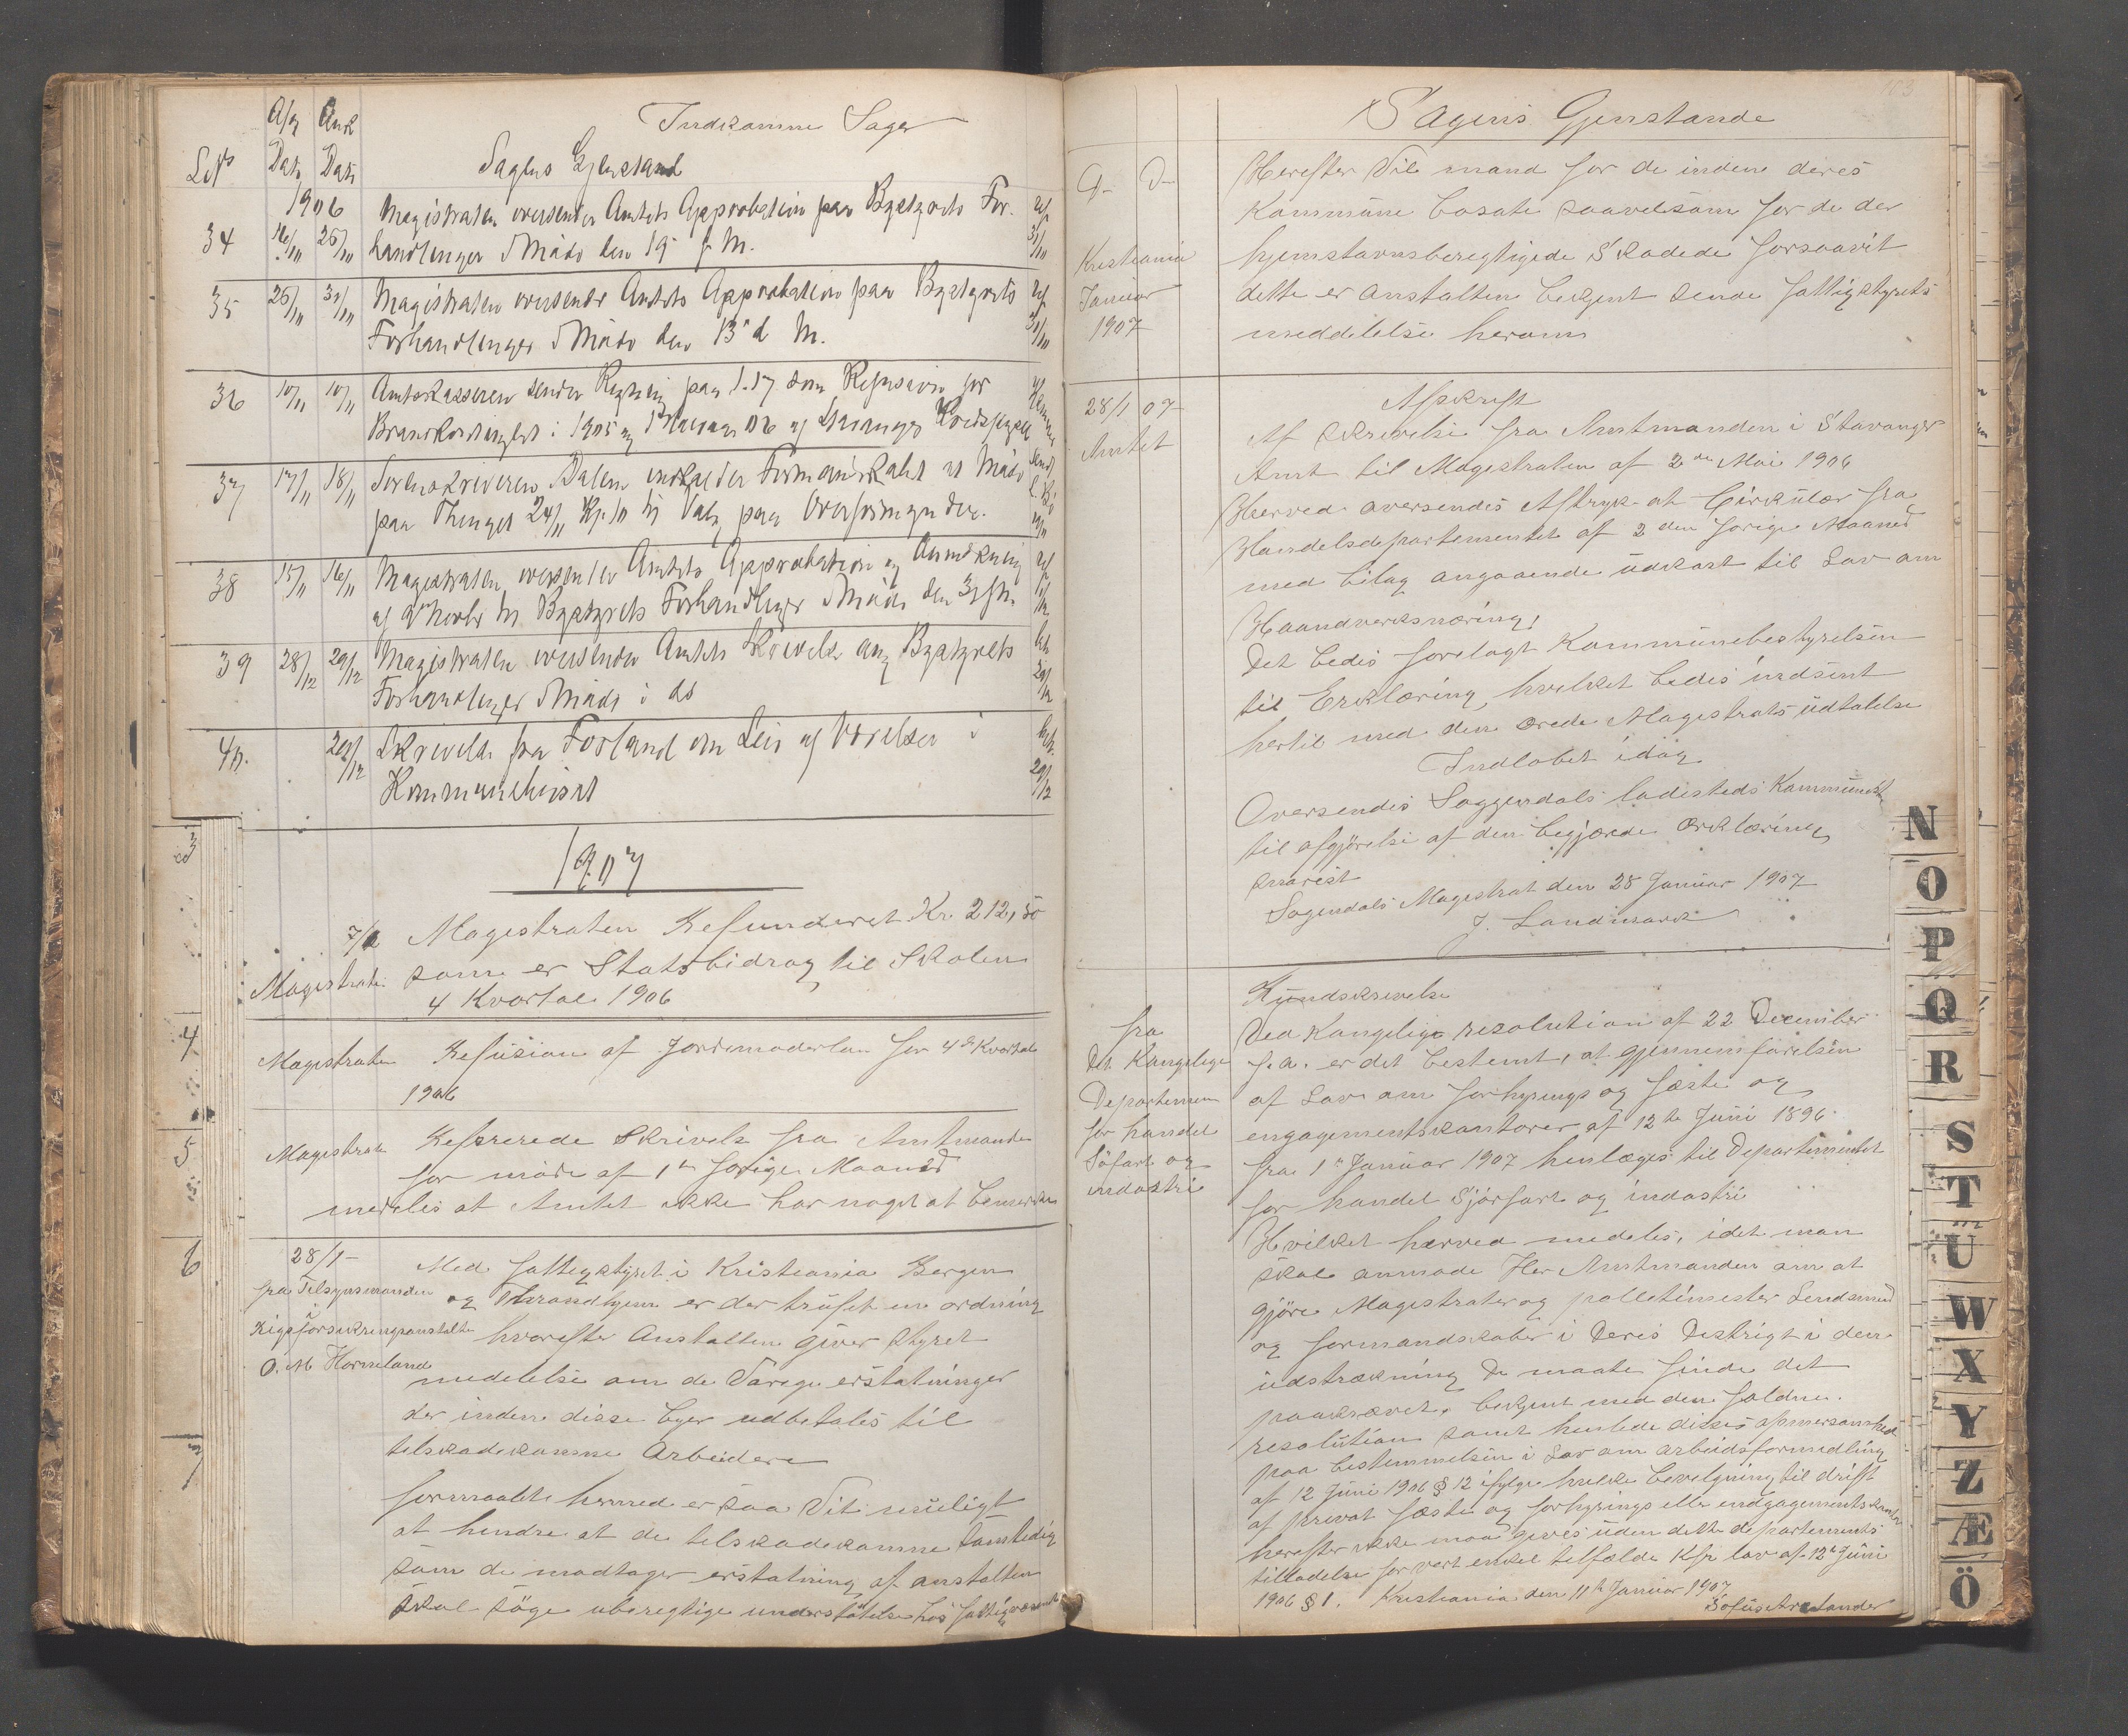 Indkomne Sager
Afg Ank
LNo Dato Dato Sagens Gjenstand
1906 Magistraten oversender Amtets Approbation paa Bystyrets For-
34 16/11 25/11 handlinger i Møde den 19 f. M.
35 25/11 30/11 Magistraten oversender Amtets Approbation paa Bystyrets
Forhandlinger i Møde den 13 d M.
36 10/11 10/11 Amtskassereren sender Regning paa 1.17 som Refusion for
i 1905 og
37 17/11 18/11 Sorenskriveren Dalen indkalder Formandskabet at Møde
paa Thinget 24/11 Kl. 10 til Valg paa Overformynder.
38 15/11 16/11 Magistraten oversender Amtets Approbation og Anmerkning
til Bystyrets Forhandlinger i Møde den
39 28/12 29/12 Magistraten oversender Amtets Skrivelse ang Bystyrets
Forhandlinger i Møde i ds
40. 29/12 Skrivelse fra Forland om Leie af Værelser i
Kommunehuset
1907
Magistraten Refunderet Kr. 212,50
Magistraten som er Statsbidrag til Skolen
4 Kvartal 1906
Magistraten Refusion af Jordemoderløn for 4de Kvartal
1906
Magistraten Refererede Skrivelse fra Amtmanden
for møde af 1ste forige Maaned
meddeles at Amtet ikke har noget at bemerke
28/1- Med fattigstyret i Kristiania Bergen
fra Tilsynsmanden og Throndhjem er der trufet en ordning
i
Rigsforsikringsanstalten hvorefter Anstalten giver styret
O. M. Horneland
medelelse om de Varige erstatninger
der inden disse byer udbetales til
telskadekomne Arbeidere
formaalet hermed er saa Vit muligt
at hendre at de telskadekomne samtedig
som de modtager erstatning af anstalten
skal søge uberegtige understøtelse hos fattigvæsenet
3
4
5
6
7
103
Sagens Gjenstande
D- D- Herefter Vil mand for de inden deres
Kommune bosate saavelsom for de der
Kristiania hjemstavnsberegtigede Skadede forsaavit
Januar dette er anstalten bekjent sende fattigstyrets
1907 meddelelse herom
28/1 07 Afskrift
Amtet Af skrivelse fra Amtmanden i Stavanger
Amt til Magestraten af 2den Mai 1906
Herved oversendes Aftryk at Cirkulær fra
Handelsdepartementet af 2den forige Maaned
med bilag angaaende udkast til Lov om
Haandverksnæring,
Det bedes forelagt Kommunebestyrelsen
til Erklæring, hvilket bedes indsent
hertil med den ærede Magestrats udtalelse
Indløbet idag
Oversendes Soggendals ladesteds Kommunest
til afgjørelse af den begjærede ærklæring
snarest
Sogendals Magestrat den 28 Januar 1907
J. Landmark
Rundskrivelse
fra Ved Kongelig resolution af 22 December
Det Kongelige f. a. er det bestemt, at gjennemførelsen
Departement af Lov om forhyrings og fæste og
for handel engagementskontorer af 12te Juni 1896
Søfart og fra 1ste Januar 1907 henlæges til Departementet
indostri for handel Sjøfart og indostri
Hvilket hærved medeles, idet man
skal anmode Her Amtmanden om at
gjøre Magestrater og politimester Lendsmend
og formandskaber i Deres Destrigt i den
udstrækning De maate finde det
paakrævet, bekjent med den faldne
resolution samt henlede disses opmerksomhed
paa bestemmelsen i Lov om arbeidsformedling
af 12 Juni 1906 § 12 ifølge hvilke bevelgning til drift
af privat fæste og forhyrings eller endgagementskontor
herefter ikke maa gives uden dette departements
tilladelse for vert enkel telfælde Kfr lov af 12te Juni
1906 § 1. Kristiania den 11te Januar 1907
Sofus Arctander
N
O
P
Q
R
S
T
U
W
X
Y
Z
Æ
Ö